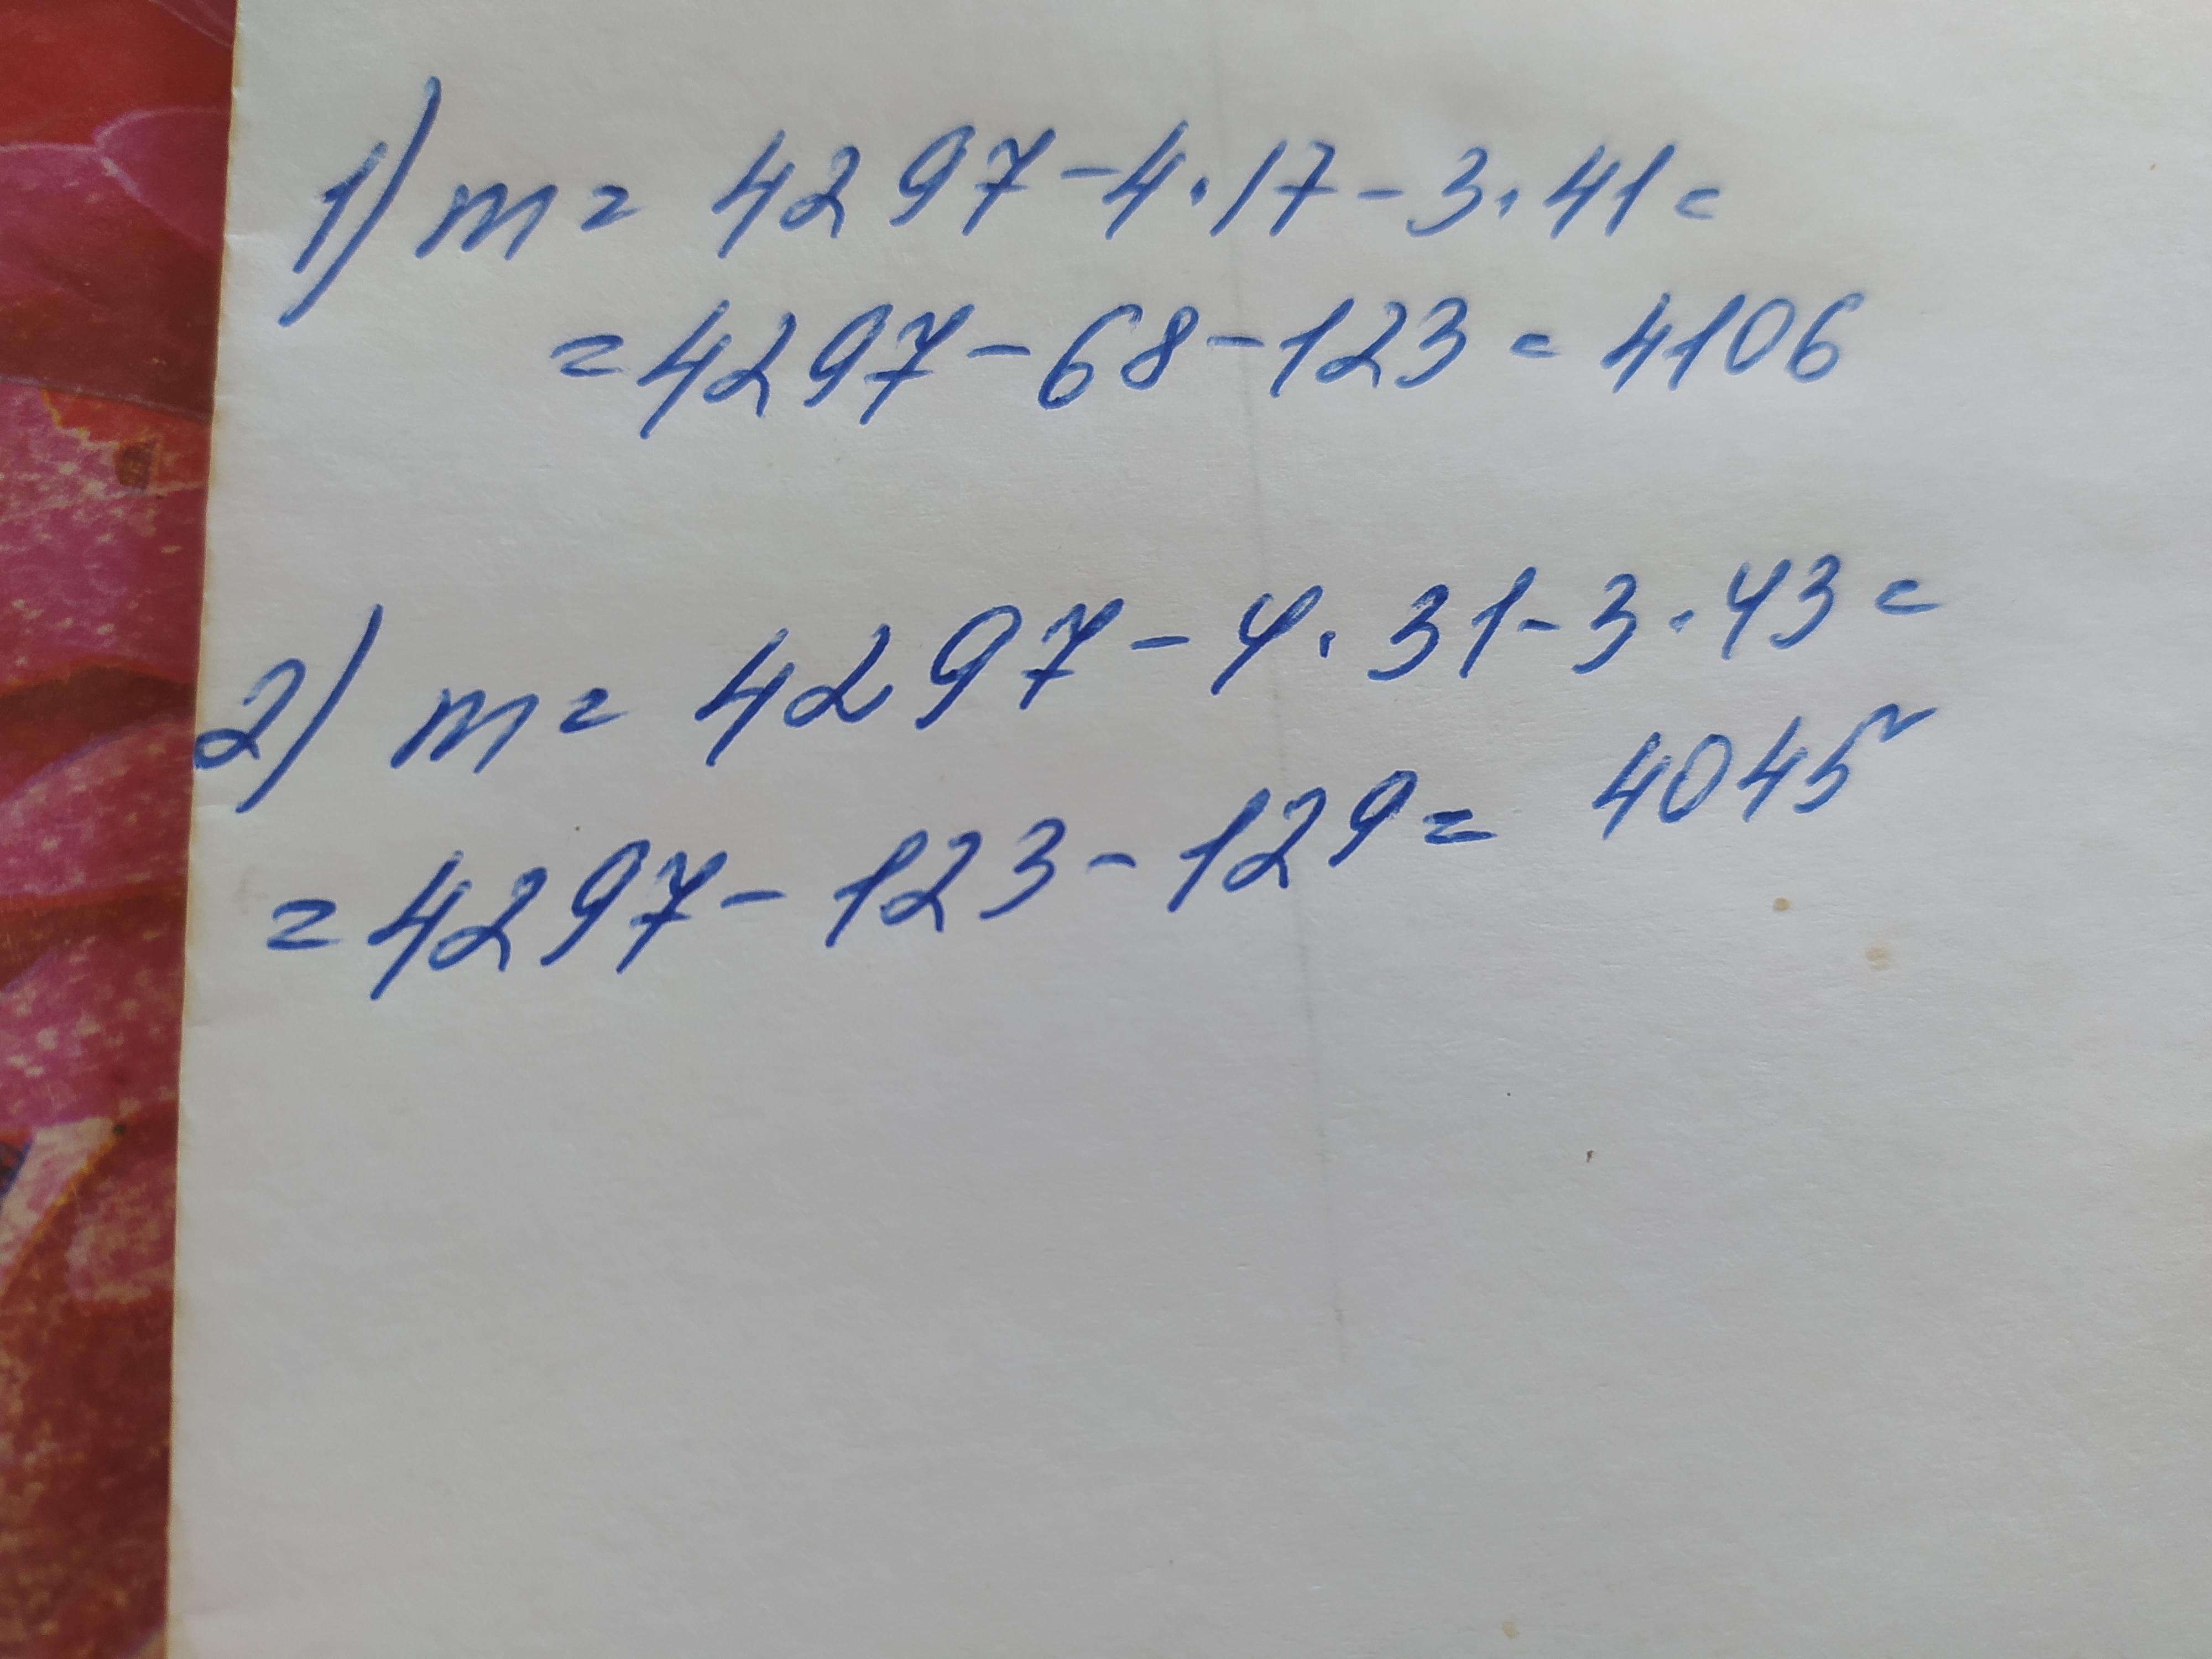 1) m = 4297 - 4 · 17 - 3 · 41 =
= 4297 - 68 - 123 = 4106
2) m = 4297 - 4 · 31 - 3 · 43 =
= 4297 - 123 - 129 = 4045